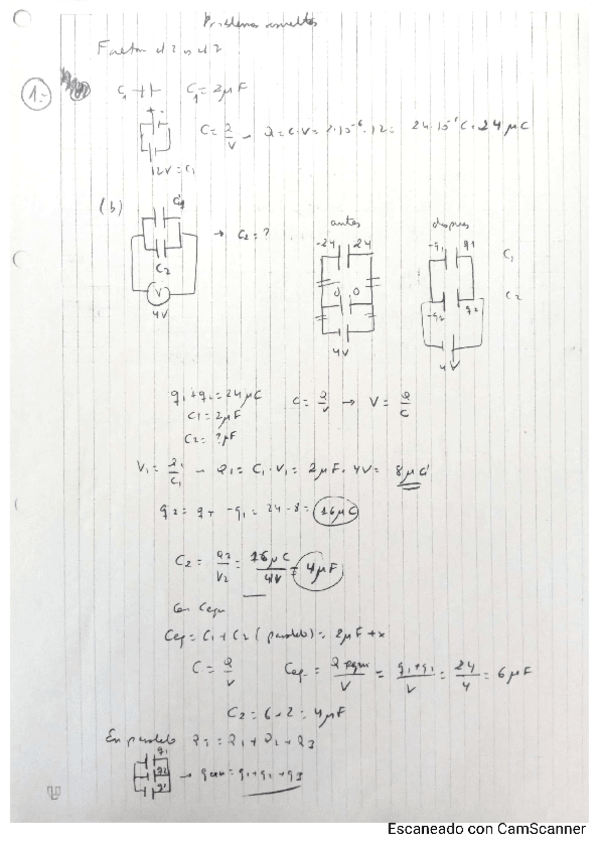 Problemas resueltos
1.-
C₁ C₁ = 2μF
C = Q/V → Q = C·V = 2·10⁻⁶·12 = 24·10⁻⁶ C = 24 μC
12V = C₁
(b)
C₁
→ C₂ = ?
C₂
V
4V
antes
-24 24
0 0
4V
despues
-q₁ q₁ C₁
-q₂ q₂ C₂
4V
q₁ + q₂ = 24μC
C = Q/V → V = Q/C
C₁ = 2μF
C₂ = ?μF
V₁ = Q₁/C₁ → Q₁ = C₁·V₁ = 2μF·4V = 8μC
q₂ = q_T - q₁ = 24 - 8 = 16μC
C₂ = Q₂/V₂ = 16μC/4V = 4μF
Con Cequ
Ceq = C₁ + C₂ (paralelo) = 2μF + x
C = Q/V Ceq = Qequi/V = q₁+q₂/V = 24/4 = 6μF
C₂ = 6 - 2 = 4μF
En paralelo = Q₁ + Q₂ + Q₃
q₁
q₂
→ = q₁ + q₂ + q₃
Escaneado con CamScanner